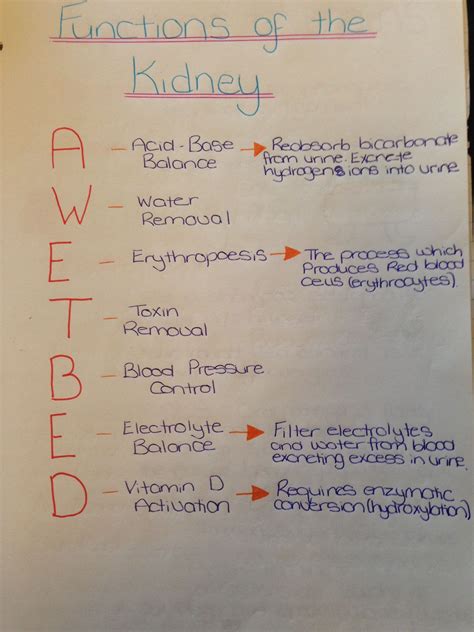 Functions of the
Kidney
A - Acid-Base → Reabsorb bicarbonate
Balance from urine. Excrete
hydrogen ions into urine
W - Water
Removal
E - Erythropoesis → The process which
Produces Red blood
cells (erythrocytes).
T - Toxin
Removal
B - Blood Pressure
Control
E - Electrolyte → Filter electrolytes
Balance and water from blood
excreting excess in urine.
D - Vitamin D → Requires enzymatic
Activation conversion (hydroxylation)